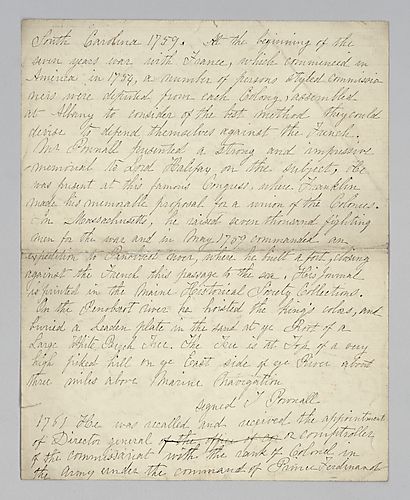 South Carolina 1759. At the beginning of the
seven years war with France, which commenced in
America in 1754, a number of persons styled commissio
ners were deputed from each Colony, assembled
at Albany to consider of the best method they could
devise to defend themselves against the French.
Mr Pownall presented a strong and impressive
memorial to Lord Halifax on the subject. He
was present at this famous Congress, where Franklin
made his memorable proposal for a union of the Colonies.
In Massachusetts, he raised seven thousand fighting
men for the war and in May 1759 commanded an
expedition to Penobscot River, where he built a fort, closing
against the French this passage to the sea. His Journal
is printed in the Maine Historical Society Collections.
On the Penobscot river he hoisted the King's colors, and
buried a Leaden plate in the sand at ye Root of a
Large White Birch Tree. The Tree is at Top of a very
high piked hill on ye East side of ye River about
three miles above Marine Navigation
signed T Pownall
1761 He was recalled and received the appointment
of Director general of the office of or comptroller
of the commissariat with the rank of Colonel in
the Army under the command of Prince Ferdinand